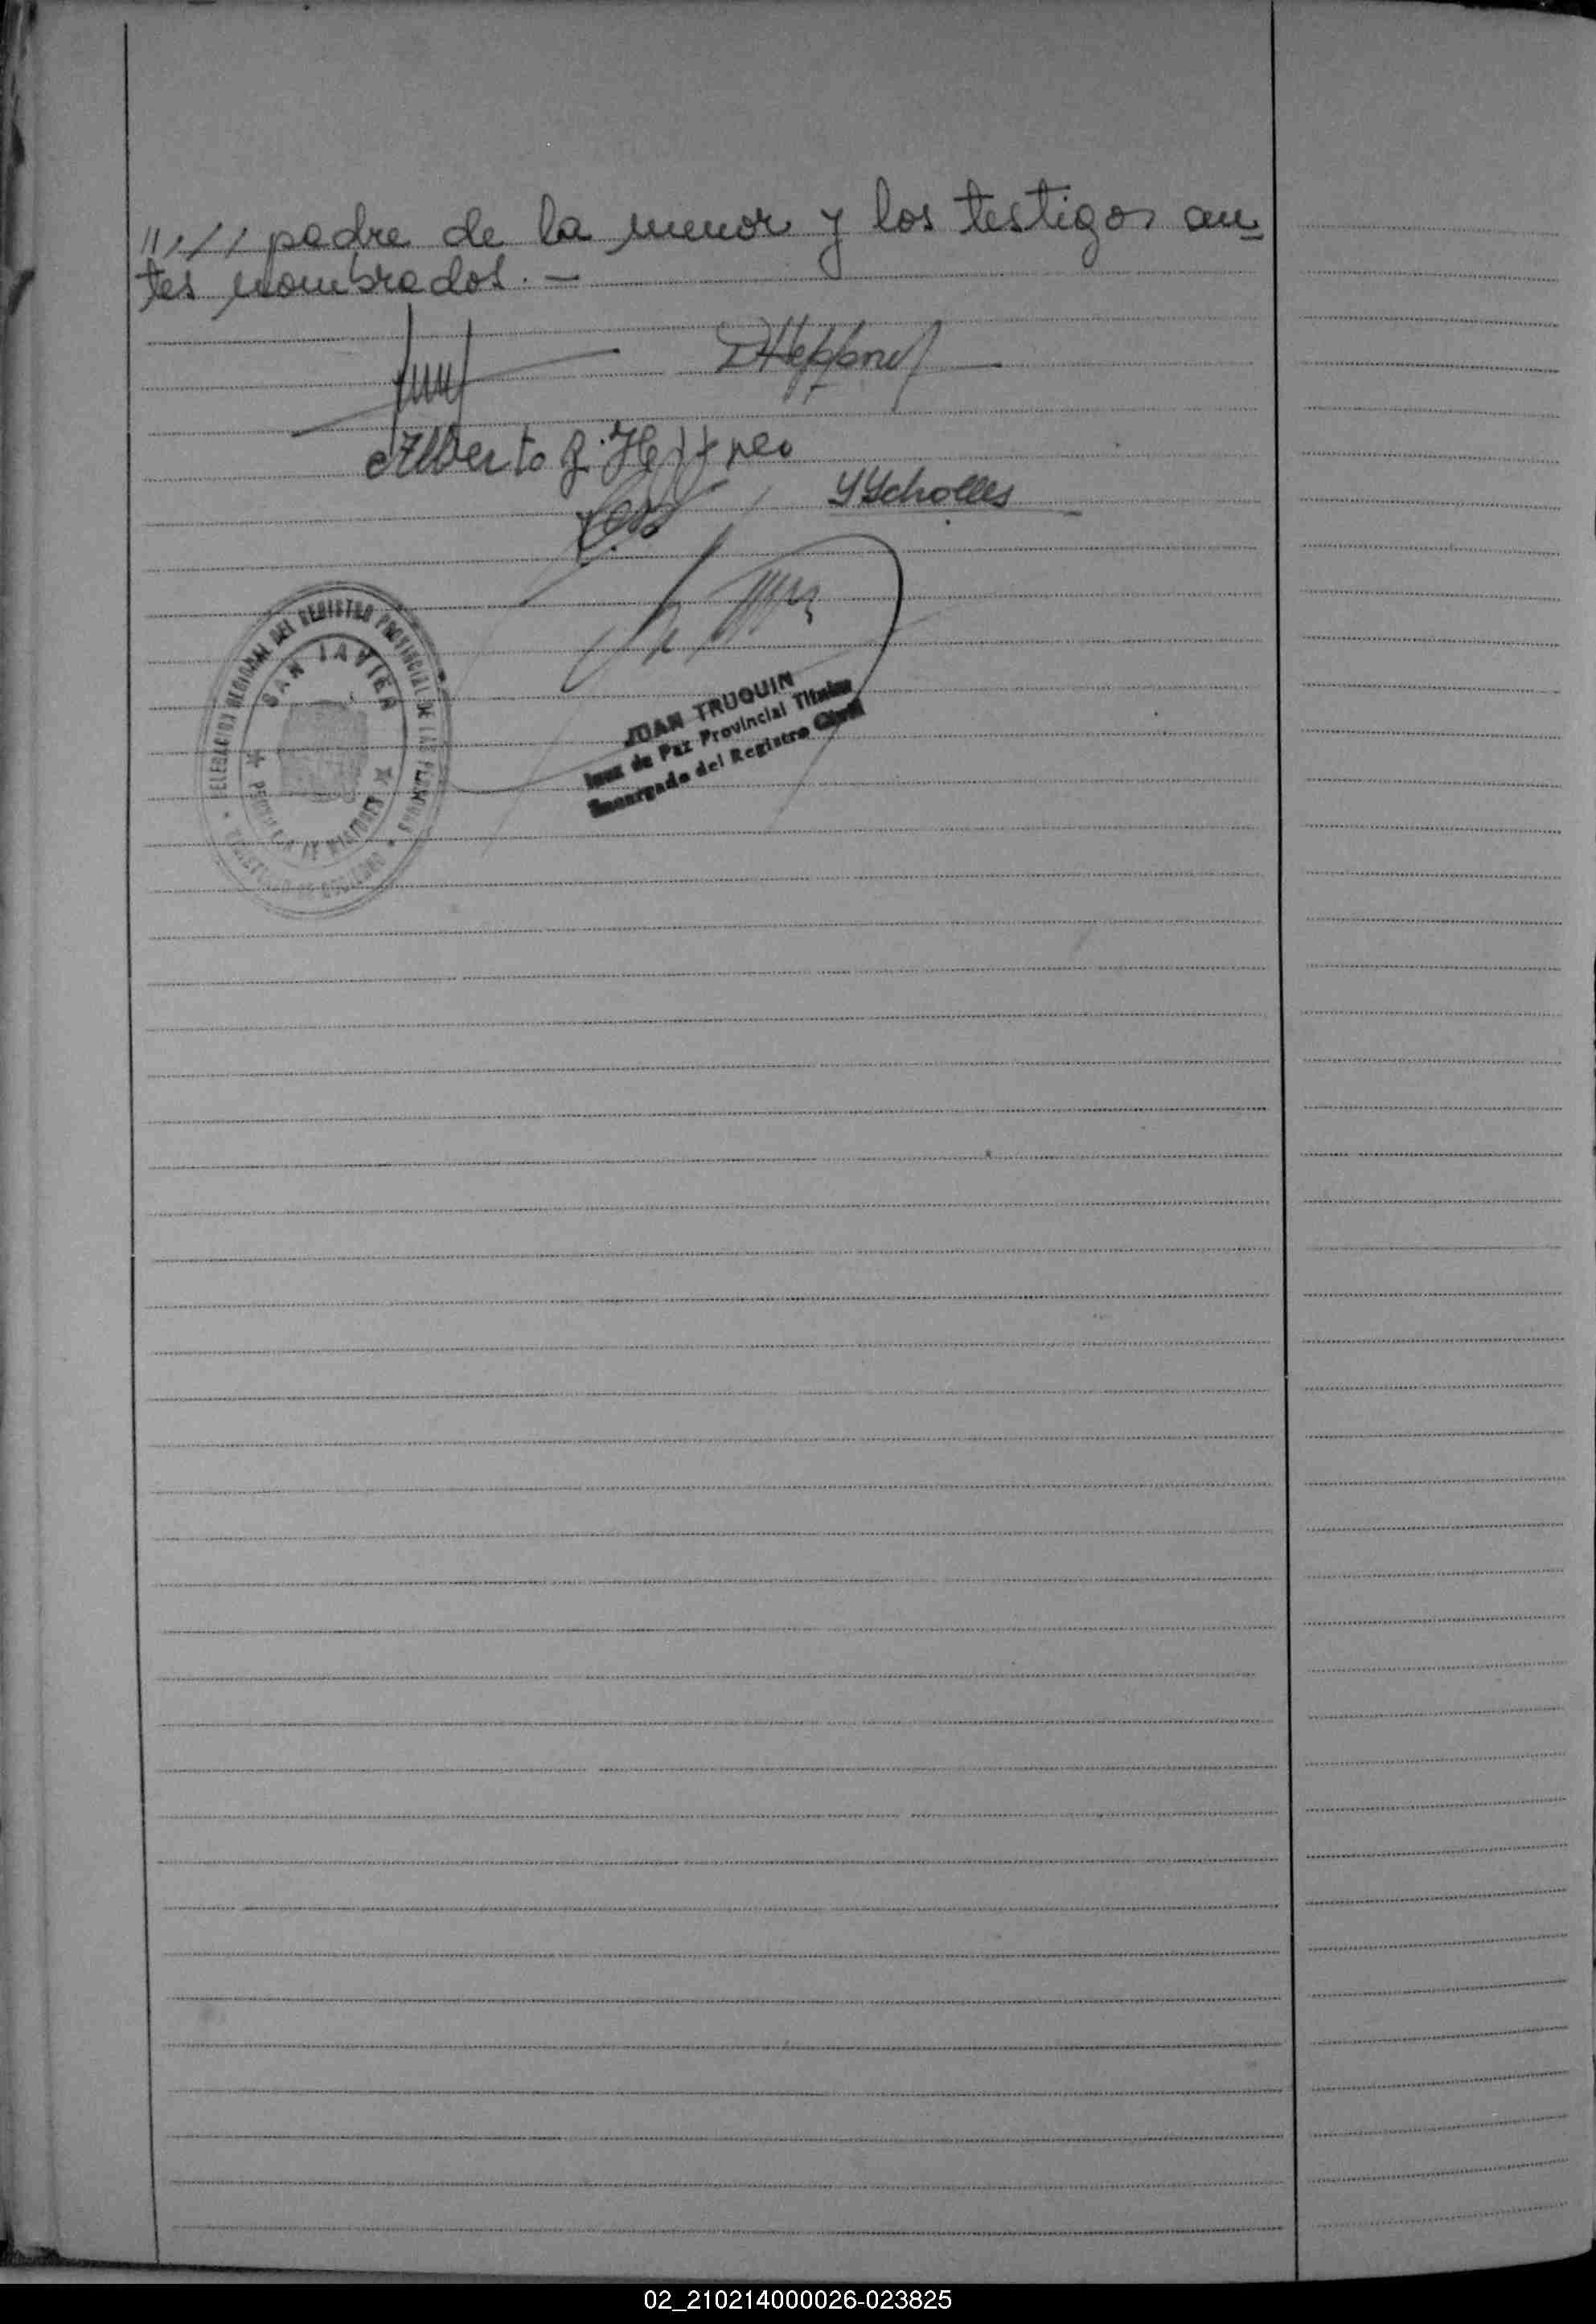 //// padre de la menor y los testigos an
tes nombrados. —
Alberto
Y Scholles
DELEGACION REGIONAL DEL REGISTRO PROVINCIAL DE LAS PERSONAS
SAN JAVIER
PROVINCIA DE MISIONES
JUAN TRUQUIN
Juez de Paz Provincial Titular
Encargado del Registro Civil
02_210214000026-023825